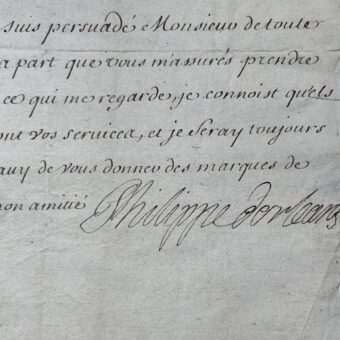 suis persuadé Monsieur de toute
a part que vous m'assurés prendre
ce qui me regarde, je connoist quels
ont vos services, et je seray toujours
de vous donner des marques de
mon amitié Philippe d'orleans